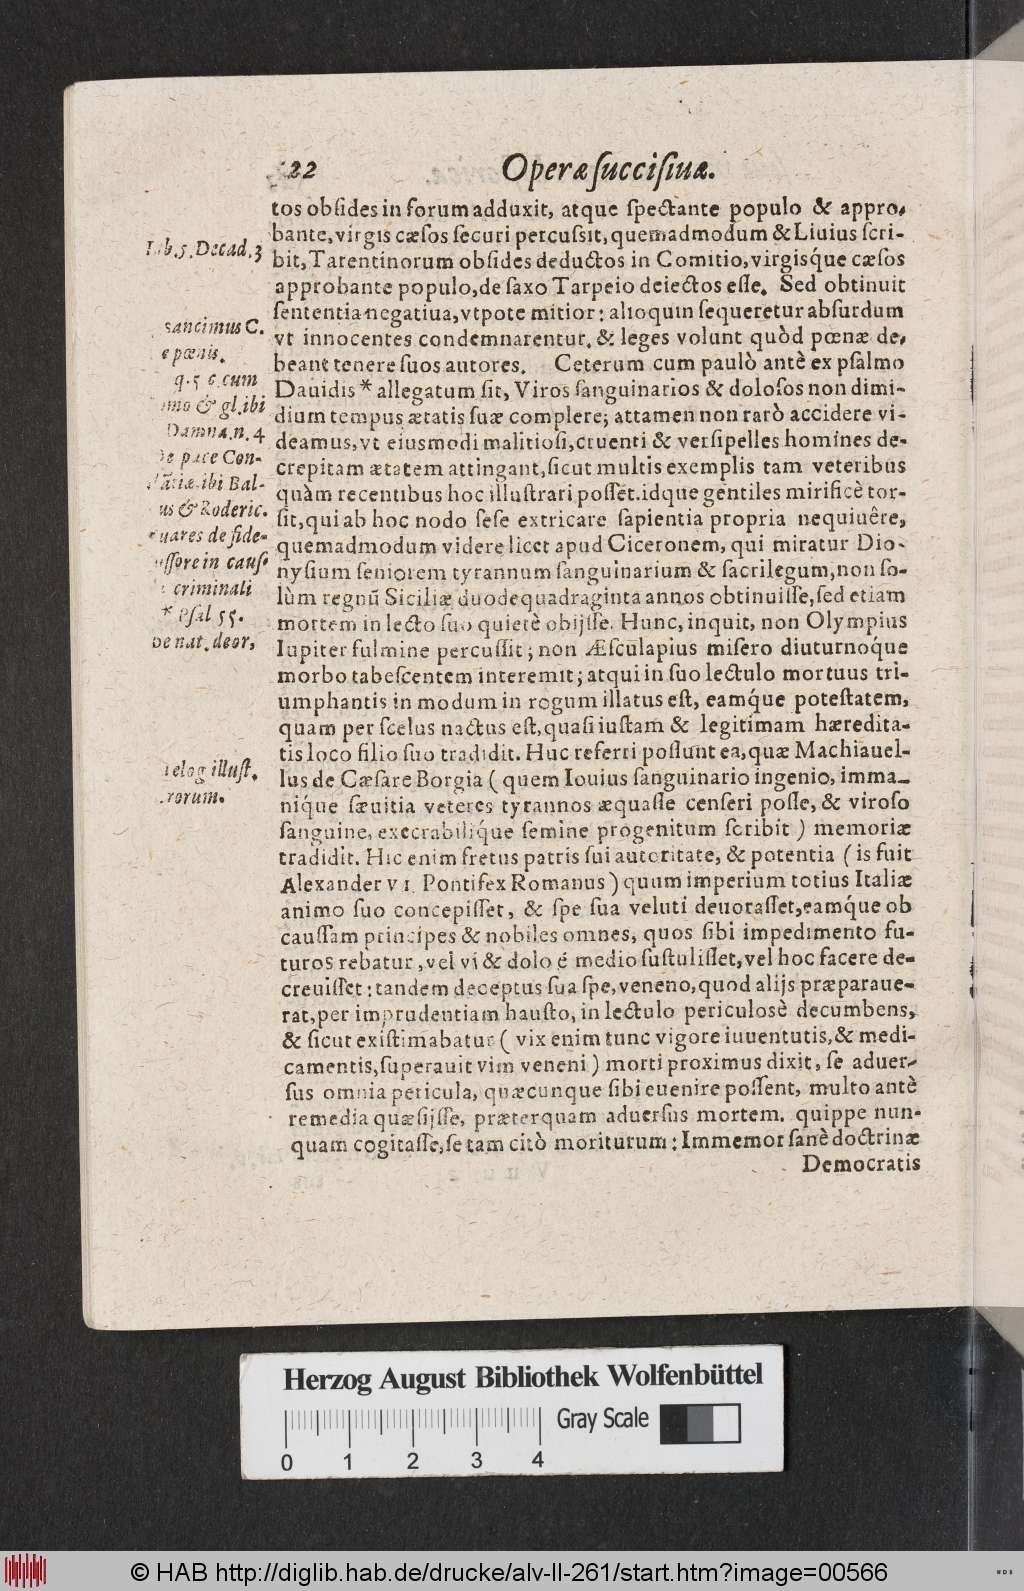 22 Operæ ſucciſiuæ.
tos obſides in forum adduxit, atque ſpectante populo & appro-
bante, virgis cæſos ſecuri percuſsit, quemadmodum & Liuius ſcri-
bit, Tarentinorum obſides deductos in Comitio, virgisq́ue cæſos
approbante populo, de ſaxo Tarpeio deiectos eſſe. Sed obtinuit
ſententia negatiua, vtpote mitior: alioquin ſequeretur abſurdum
vt innocentes condemnarentur. & leges volunt quòd pœnæ de-
beant tenere ſuos autores. Ceterum cum paulò antè ex pſalmo
Dauidis * allegatum ſit, Viros ſanguinarios & doloſos non dimi-
dium tempus ætatis ſuæ complere; attamen non rarò accidere vi-
deamus, vt eiuſmodi malitioſi, cruenti & verſipelles homines de-
crepitam ætatem attingant, ſicut multis exemplis tam veteribus
quàm recentibus hoc illuſtrari poſſet. idque gentiles mirificè tor-
ſit, qui ab hoc nodo ſeſe extricare ſapientia propria nequiuêre,
quemadmodum videre licet apud Ciceronem, qui miratur Dio-
nyſium ſeniorem tyrannum ſanguinarium & ſacrilegum, non ſo-
lùm regnū Siciliæ duodequadraginta annos obtinuiſſe, ſed etiam
mortem in lecto ſuo quietè obijſſe. Hunc, inquit, non Olympius
Iupiter fulmine percuſſit; non Æſculapius miſero diuturnoq́ue
morbo tabeſcentem interemit; atqui in ſuo lectulo mortuus tri-
umphantis in modum in rogum illatus eſt, eamq́ue poteſtatem,
quam per ſcelus nactus eſt, quaſi iuſtam & legitimam hæredita-
tis loco filio ſuo tradidit. Huc referri poſſunt ea, quæ Machiauel-
lus de Cæſare Borgia ( quem Iouius ſanguinario ingenio, imma-
niq́ue ſæuitia veteres tyrannos æquaſſe cenſeri poſſe, & viroſo
ſanguine, execrabiliq́ue ſemine progenitum ſcribit ) memoriæ
tradidit. Hic enim fretus patris ſui autoritate, & potentia ( is fuit
Alexander VI. Pontifex Romanus ) quum imperium totius Italiæ
animo ſuo concepiſſet, & ſpe ſua veluti deuoraſſet, eamq́ue ob
cauſſam principes & nobiles omnes, quos ſibi impedimento fu-
turos rebatur, vel vi & dolo é medio ſuſtuliſſet, vel hoc facere de-
creuiſſet: tandem deceptus ſua ſpe, veneno, quod alijs præparaue-
rat, per imprudentiam hauſto, in lectulo periculosè decumbens,
& ſicut exiſtimabatur ( vix enim tunc vigore iuuentutis, & medi-
camentis, ſuperauit vim veneni ) morti proximus dixit, ſe aduer-
ſus omnia pericula, quæcunque ſibi euenire poſſent, multo antè
remedia quæſijſſe, præterquam aduerſus mortem. quippe nun-
quam cogitaſſe, ſe tam citò moriturum: Immemor ſanè doctrinæ
Democratis
Lib. 5. Decad. 3
sancimus C.
pœnis.
q. 5 c. cum
& gl. ibi
Damna. n. 4
De pace Con-
ibi Bal-
& Roderic.
de fide-
in cauſ.
criminali
* Pſal 55.
De nat. deor,
elog illuſt.
Herzog August Bibliothek Wolfenbüttel
Gray Scale
0 1 2 3 4
© HAB http://diglib.hab.de/drucke/alv-ll-261/start.htm?image=00566